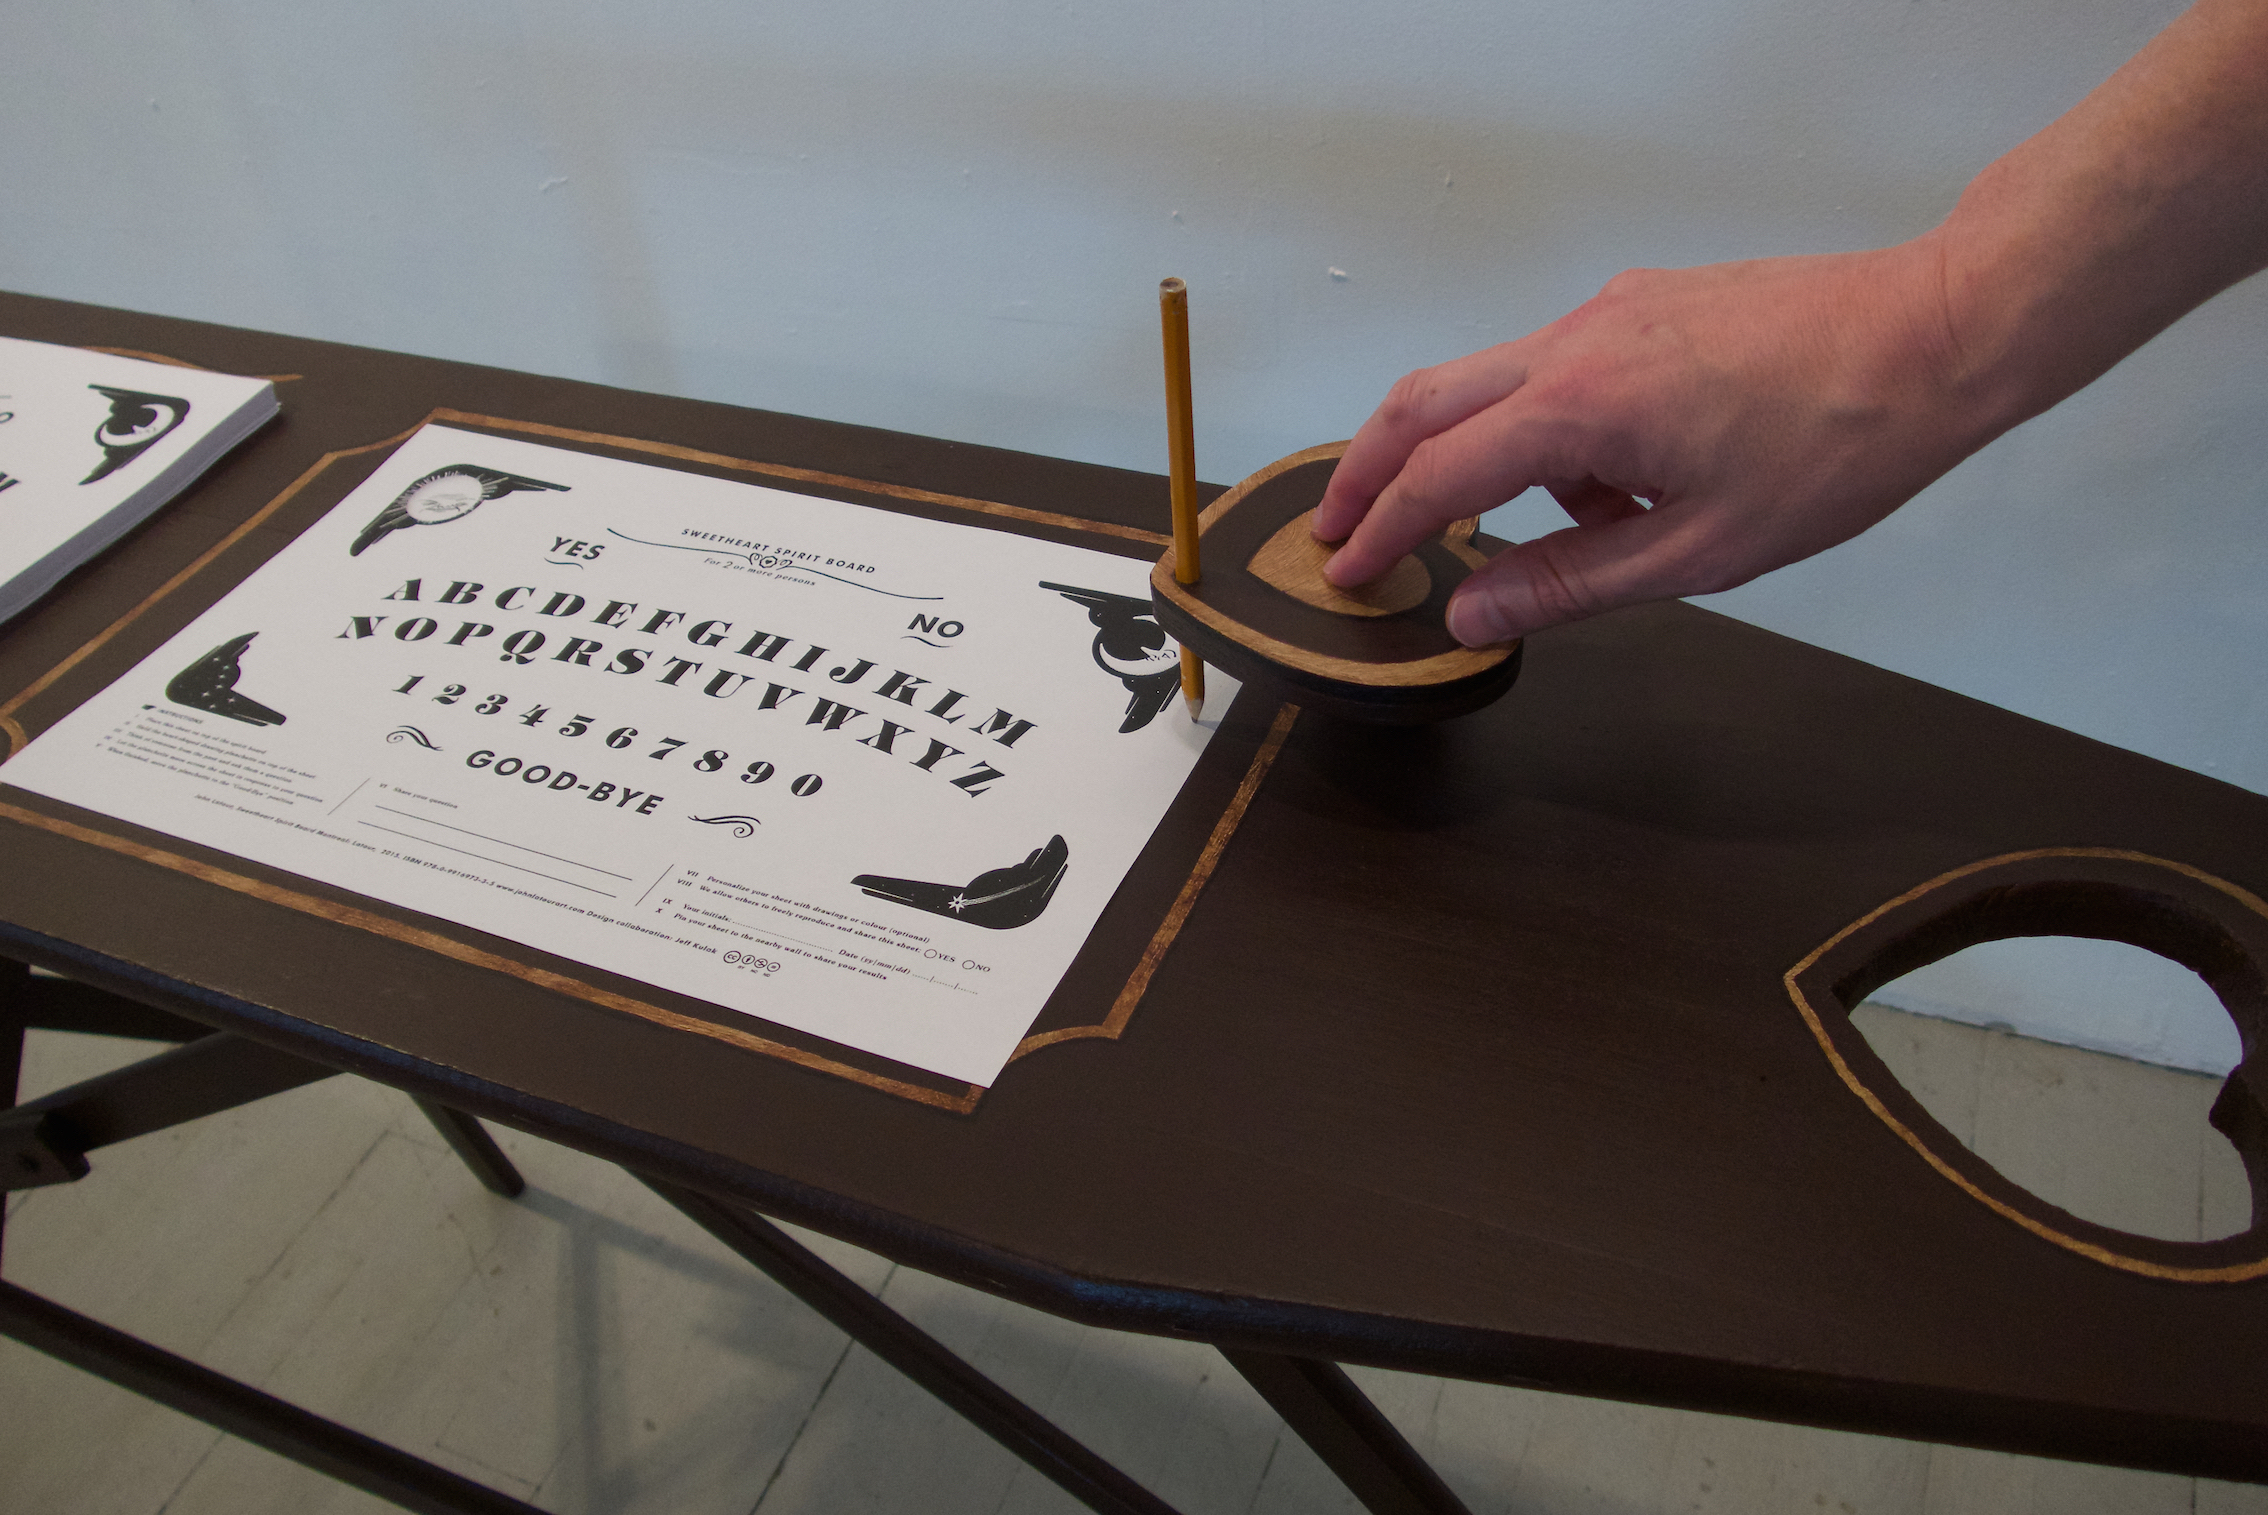 SWEETHEART SPIRIT BOARD
For 2 or more persons
YES
NO
A B C D E F G H I J K L M
N O P Q R S T U V W X Y Z
1 2 3 4 5 6 7 8 9 0
GOOD-BYE
INSTRUCTIONS
VI Share your question
John Latour, Sweetheart Spirit Board Montreal: Latour, 2013. ISBN 978-0-9916973-3-5 www.johnlatourart.com Design collaboration: Jeff Kulak
VII Personalize your sheet with drawings or colour (optional)
VIII We allow others to freely reproduce and share this sheet: YES NO
IX Your initials: Date (yy/mm/dd)
X Pin your sheet to the nearby wall to share your results